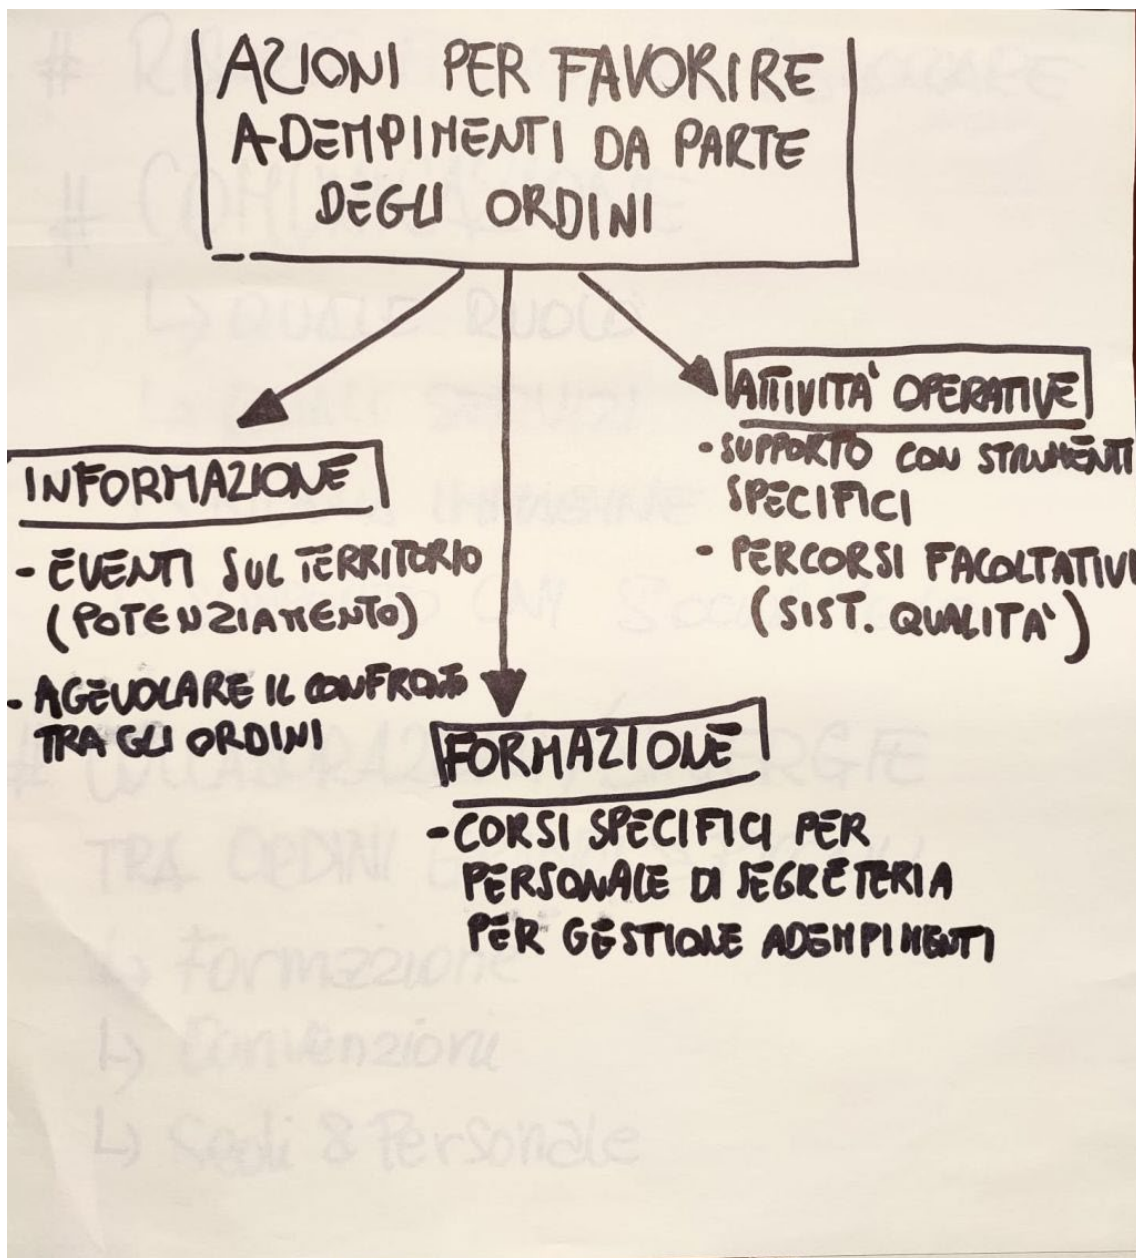 AZIONI PER FAVORIRE
ADEMPIMENTI DA PARTE
DEGLI ORDINI
INFORMAZIONE
- EVENTI SUL TERRITORIO
(POTENZIAMENTO)
- AGEVOLARE IL CONFRONTO
TRA GLI ORDINI
FORMAZIONE
- CORSI SPECIFICI PER
PERSONALE DI SEGRETERIA
PER GESTIONE ADEMPIMENTI
ATTIVITA' OPERATIVE
- SUPPORTO CON STRUMENTI
SPECIFICI
- PERCORSI FACOLTATIVI
(SIST. QUALITA')
TRA ORDINI
↳ Formazione
↳ Convenzioni
↳ Sedi & Personale